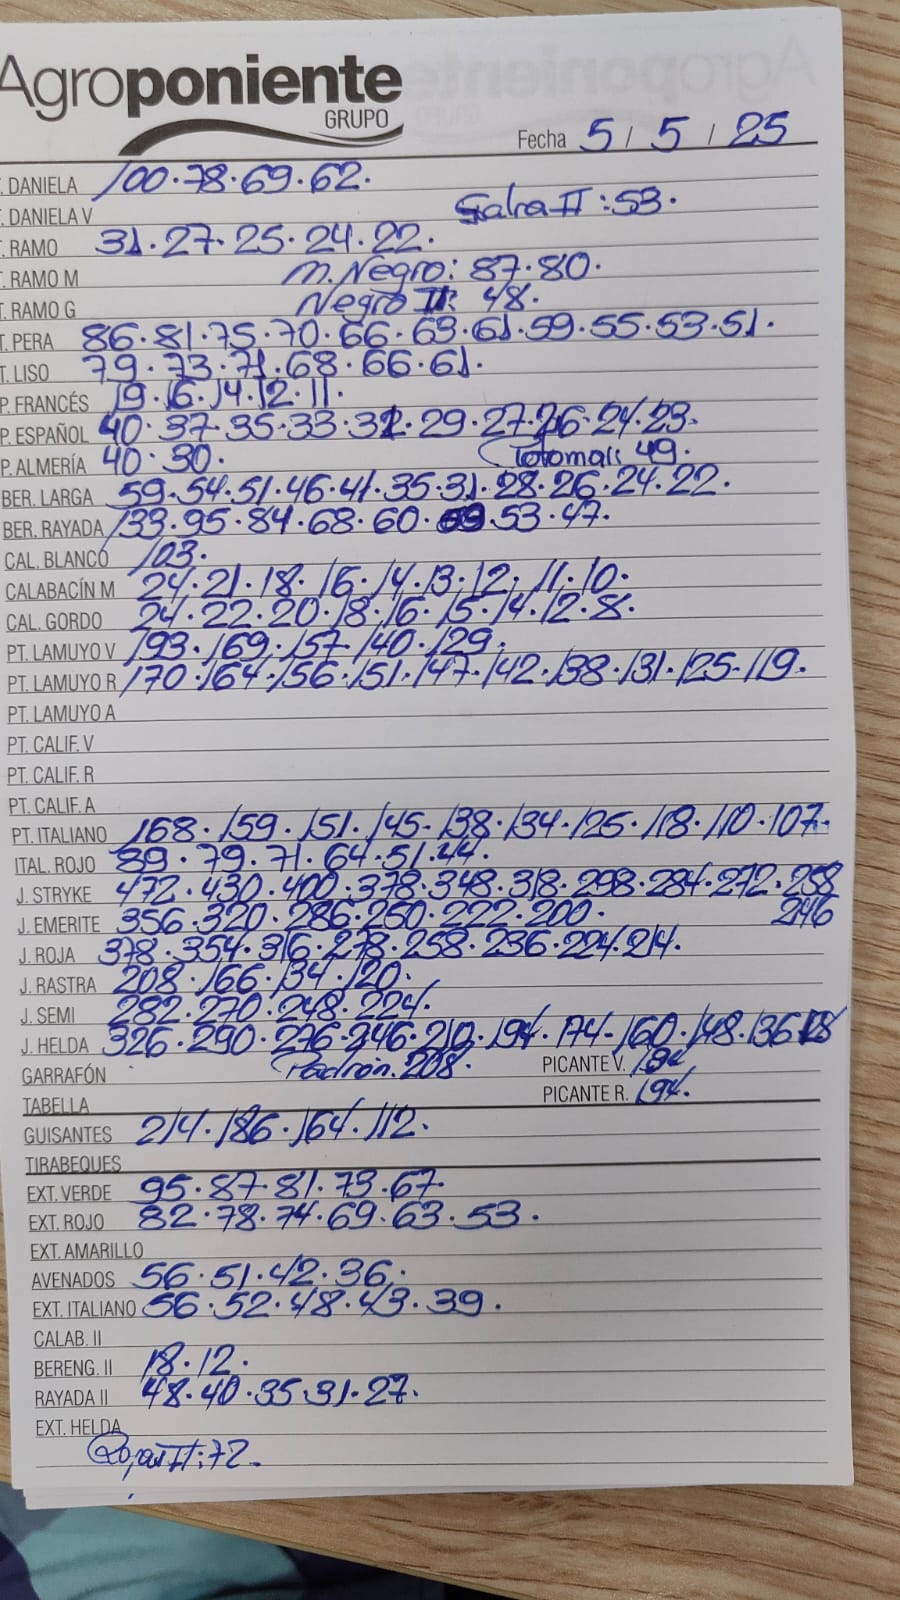 Agroponiente
GRUPO
Fecha 5 / 5 / 25
T. DANIELA 100.78.69.62.
T. DANIELA V Galra II: 53.
T. RAMO 31.27.25.24.22.
T. RAMO M M. Negro: 87.80.
T. RAMO G Negro II: 48.
T. PERA 86.81.75.70.66.63.61.59.55.53.51.
T. LISO 79.73.71.68.66.61.
P. FRANCÉS 19.16.14.12.11.
P. ESPAÑOL 40.37.35.33.31.29.27.26.24.23.
P. ALMERÍA 40.30. 49.
BER. LARGA 59.54.51.46.41.35.31.28.26.24.22.
BER. RAYADA 133.95.84.68.60.53.47.
CAL. BLANCO 103.
CALABACÍN M 24.21.18.16.14.13.12.11.10.
CAL. GORDO 24.22.20.18.16.15.14.12.8.
PT. LAMUYO V 193.169.157.140.129.
PT. LAMUYO R 170.164.156.151.147.142.138.131.125.119.
PT. LAMUYO A
PT. CALIF. V
PT. CALIF. R
PT. CALIF. A
PT. ITALIANO 168.159.151.145.138.134.125.118.110.107.
ITAL. ROJO 89.79.71.64.51.44.
J. STRYKE 472.430.400.378.348.318.298.284.272.258
J. EMERITE 356.320.286.250.222.200. 246
J. ROJA 378.354.316.278.258.236.224.214.
J. RASTRA 208.166.134.120.
J. SEMI 282.270.248.224.
J. HELDA 326.290.276.246.210.194.174.160.148.136
GARRAFÓN Padrón. 208. PICANTE V. 194
TABELLA PICANTE R. 194.
GUISANTES 214.186.164.112.
TIRABEQUES
EXT. VERDE 95.87.81.73.67.
EXT. ROJO 82.78.74.69.63.53.
EXT. AMARILLO
AVENADOS 56.51.42.36.
EXT. ITALIANO 56.52.48.43.39.
CALAB. II
BERENG. II 18.12.
RAYADA II 48.40.35.31.27.
EXT. HELDA
II: 72.